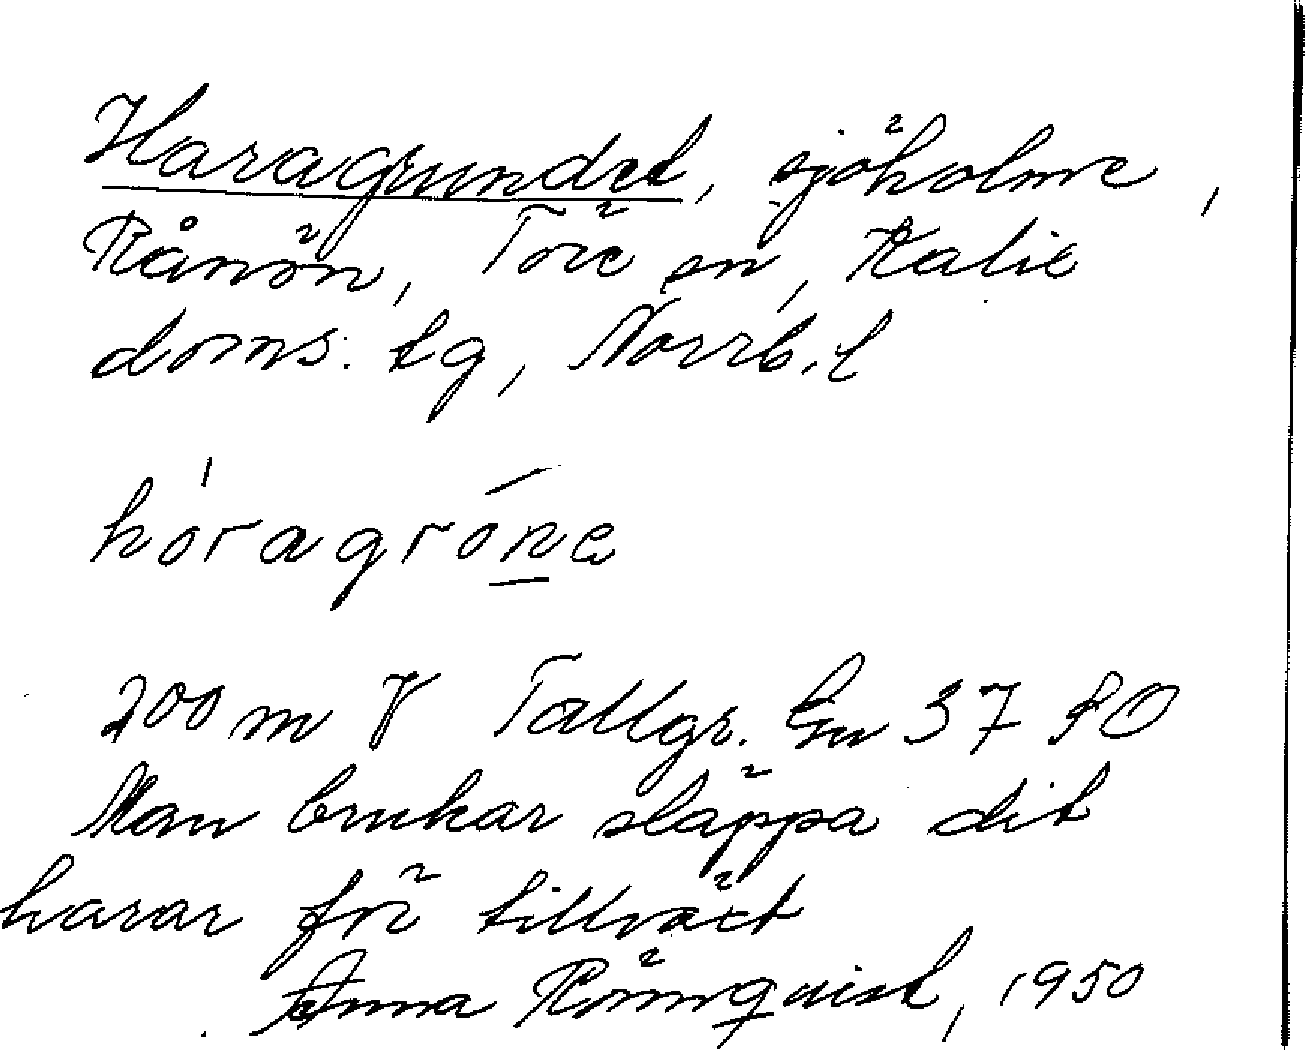 Haragrundet, sjöholme,
Rånön, Töre sn, Kalix
doms. tg, Norrb. l
hóragróne
200 m V Tallgr. Eu 37 80
Man brukar släppa dit
harar för tillväxt
Anna Rönnquist, 1950